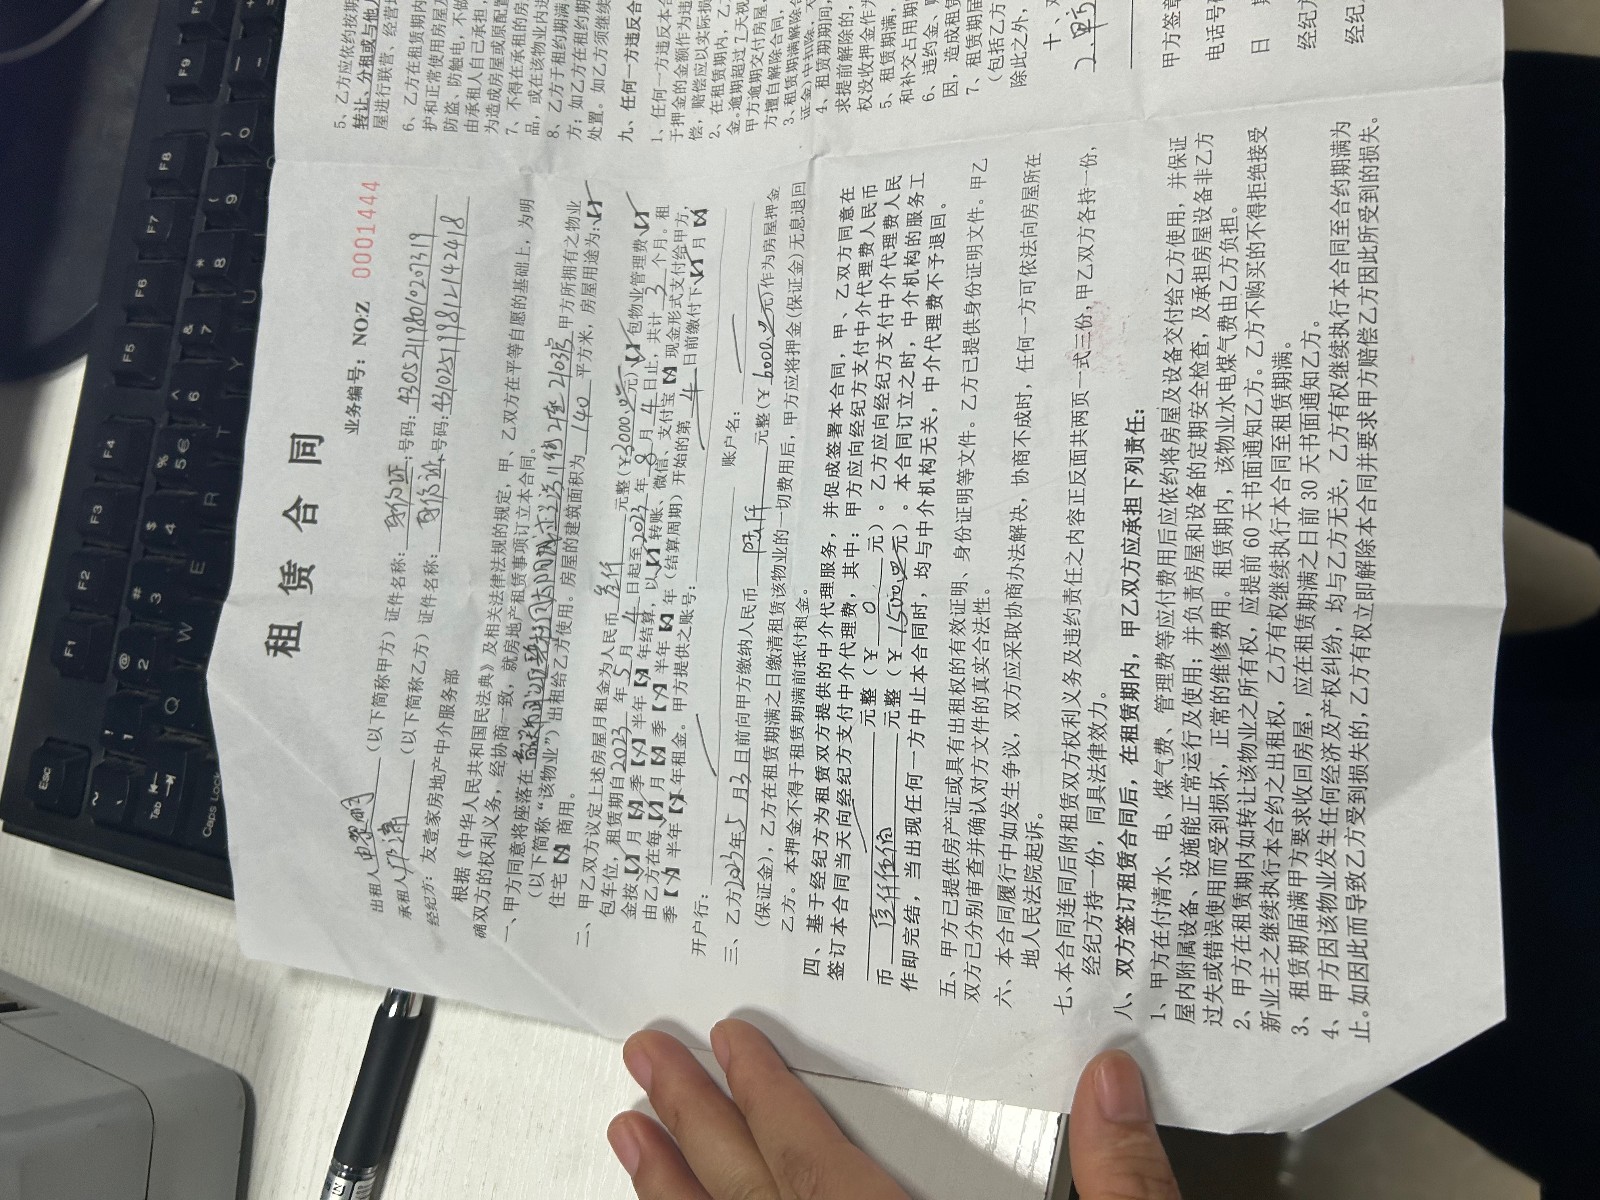 租 赁 合 同
业务编号：NO:Z 0001444
出租人（以下简称甲方）证件名称：身份证 号码：
承租人（以下简称乙方）证件名称：身份证 号码：
经纪方：友壹家房地产中介服务部
根据《中华人民共和国民法典》及相关法律法规的规定，甲、乙双方在平等自愿的基础上，为明
确双方的权利义务，经协商一致，就房地产租赁事项订立本合同。
一、甲方同意将座落在 2座2103房 甲方所拥有之物业
（以下简称“该物业”）出租给乙方使用。房屋的建筑面积为 140 平方米，房屋用途为：【✓】
住宅【×】商用。
二、甲乙双方议定上述房屋月租金为人民币 叁仟 元整（￥3000元）【✓】包物业管理费【✓】
包车位，租赁期自2023年5月4日起至2023年8月4日止，共计3个月。租
金按【✓】月【×】季【×】半年【×】年结算，以【✓】转账、微信、支付宝【×】现金形式支付给甲方，
由乙方在每【✓】月【×】季【×】半年【×】年（结算周期）开始的第 4 日前缴付下【✓】月【×】
季【×】半年【×】年租金。甲方提供之账号：
开户行： 账户名：
三、乙方2023年5月3日前向甲方缴纳人民币 陆仟 元整（￥6000元）作为房屋押金
（保证金），乙方在租赁期满之日缴清租赁该物业的一切费用后，甲方应将押金（保证金）无息退回
乙方。本押金不得于租赁期满前抵付租金。
四、基于经纪方为租赁双方提供的中介代理服务，并促成签署本合同，甲、乙双方同意在
签订本合同当天向经纪方支付中介代理费，其中：甲方应向经纪方支付中介代理费人民币
元整（￥ 0 元）。乙方应向经纪方支付中介代理费人民
币 壹仟伍佰 元整（￥ 1500元）。本合同订立之时，中介机构的服务工
作即完结，当出现任何一方中止本合同时，均与中介机构无关，中介代理费不予退回。
五、甲方已提供房产证或具有出租权的有效证明、身份证明等文件。乙方已提供身份证明文件。甲乙
双方已分别审查并确认对方文件的真实合法性。
六、本合同履行中如发生争议，双方应采取协商办法解决，协商不成时，任何一方可依法向房屋所在
地人民法院起诉。
七、本合同连同后附租赁双方权利义务及违约责任之内容正反面共两页一式三份，甲乙双方各持一份，
经纪方持一份，同具法律效力。
八、双方签订租赁合同后，在租赁期内，甲乙双方应承担下列责任：
1、甲方在付清水、电、煤气费、管理费等应付费用后应依约将房屋及设备交付给乙方使用，并保证
屋内附属设备、设施能正常运行及使用；并负责房屋和设备的定期安全检查，及承担房屋设备非乙方
过失或错误使用而受到损坏，正常的维修费用。租赁期内，该物业水电煤气费由乙方负担。
2、甲方在租赁期内如转让该物业之所有权，应提前 60 天书面通知乙方。乙方不购买的不得拒绝接受
新业主之继续执行本合约之出租权，乙方有权继续执行本合同至租赁期满。
3、租赁期届满甲方要求收回房屋，应在租赁期满之日前 30 天书面通知乙方。
4、甲方因该物业发生任何经济及产权纠纷，均与乙方无关，乙方有权继续执行本合同至合约期满为
止。如因此而导致乙方受到损失的，乙方有权立即解除本合同并要求甲方赔偿乙方因此所受到的损失。
5、乙方应依约按期
转让、分租或与他人
屋进行联营、经营
6、乙方在租赁期内
护和正常使用房屋及
防盗、防触电，不做
由承租人自己承担，
为造成房屋或原配置
7、不得在承租的房
品，或在该物业内进
8、乙方于租约期满
方；如乙方在租约期
处置。如乙方须继续
九、任何一方违反合
1、任何一方违反本合
于押金的金额作为违
偿，赔偿应以实际损
2、在租赁期内，乙
金。逾期超过 7 天视
甲方逾期交付房屋
方擅自解除合同，
3、租赁期满解除合
4、租赁期期间，
求提前解除的，
权没收押金作
5、租赁期满，
和补交占用期
6、违约金、
因，造成租赁
7、租赁期届
（包括乙方
除此之外，
十、
甲方签章
电话号
日 期
经纪方
经纪
Esc
F1
F2
F3
F4
F5
F6
F7
F8
F9
Tab
Caps Lock
Q
W
E
R
T
Y
U